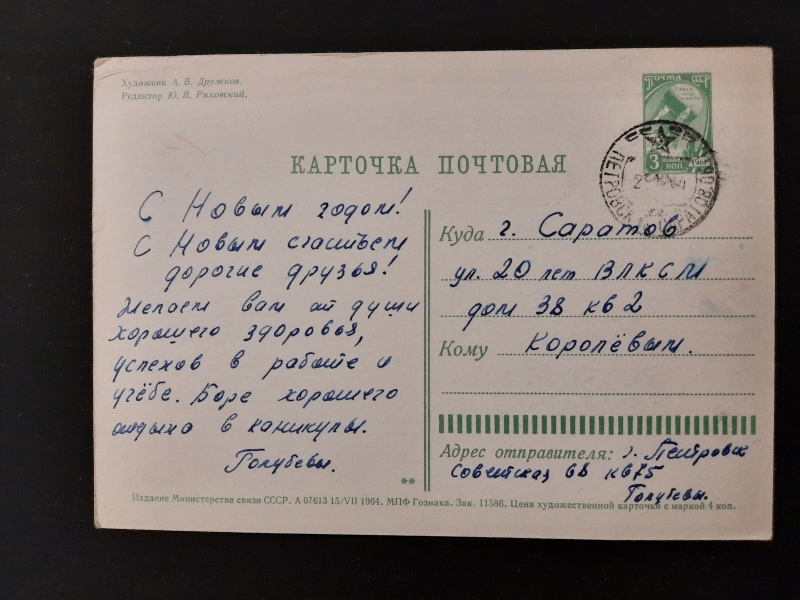 Художник А. В. Дружков.
Редактор Ю. В. Ряховский.
ПОЧТА СССР
3
КОП
1961
ПЕТРОВСК САРАТОВ.ОБ
КАРТОЧКА ПОЧТОВАЯ
С Новым годом!
С Новым счастьем
дорогие друзья!
Желаем вам от души
хорошего здоровья,
успехов в работе и
учёбе. Боре хорошего
отдыха в каникулы.
Голубевы.
Куда г. Саратов
ул. 20 лет ВЛКСМ
дом 38 кв 2
Кому Королёвым.
Адрес отправителя: г. Петровск
Советская 68 кв75
Голубевы.
**
Издание Министерства связи СССР. А 07613 15/VII 1964. МПФ Гознака. Зак. 11586. Цена художественной карточки с маркой 4 коп.